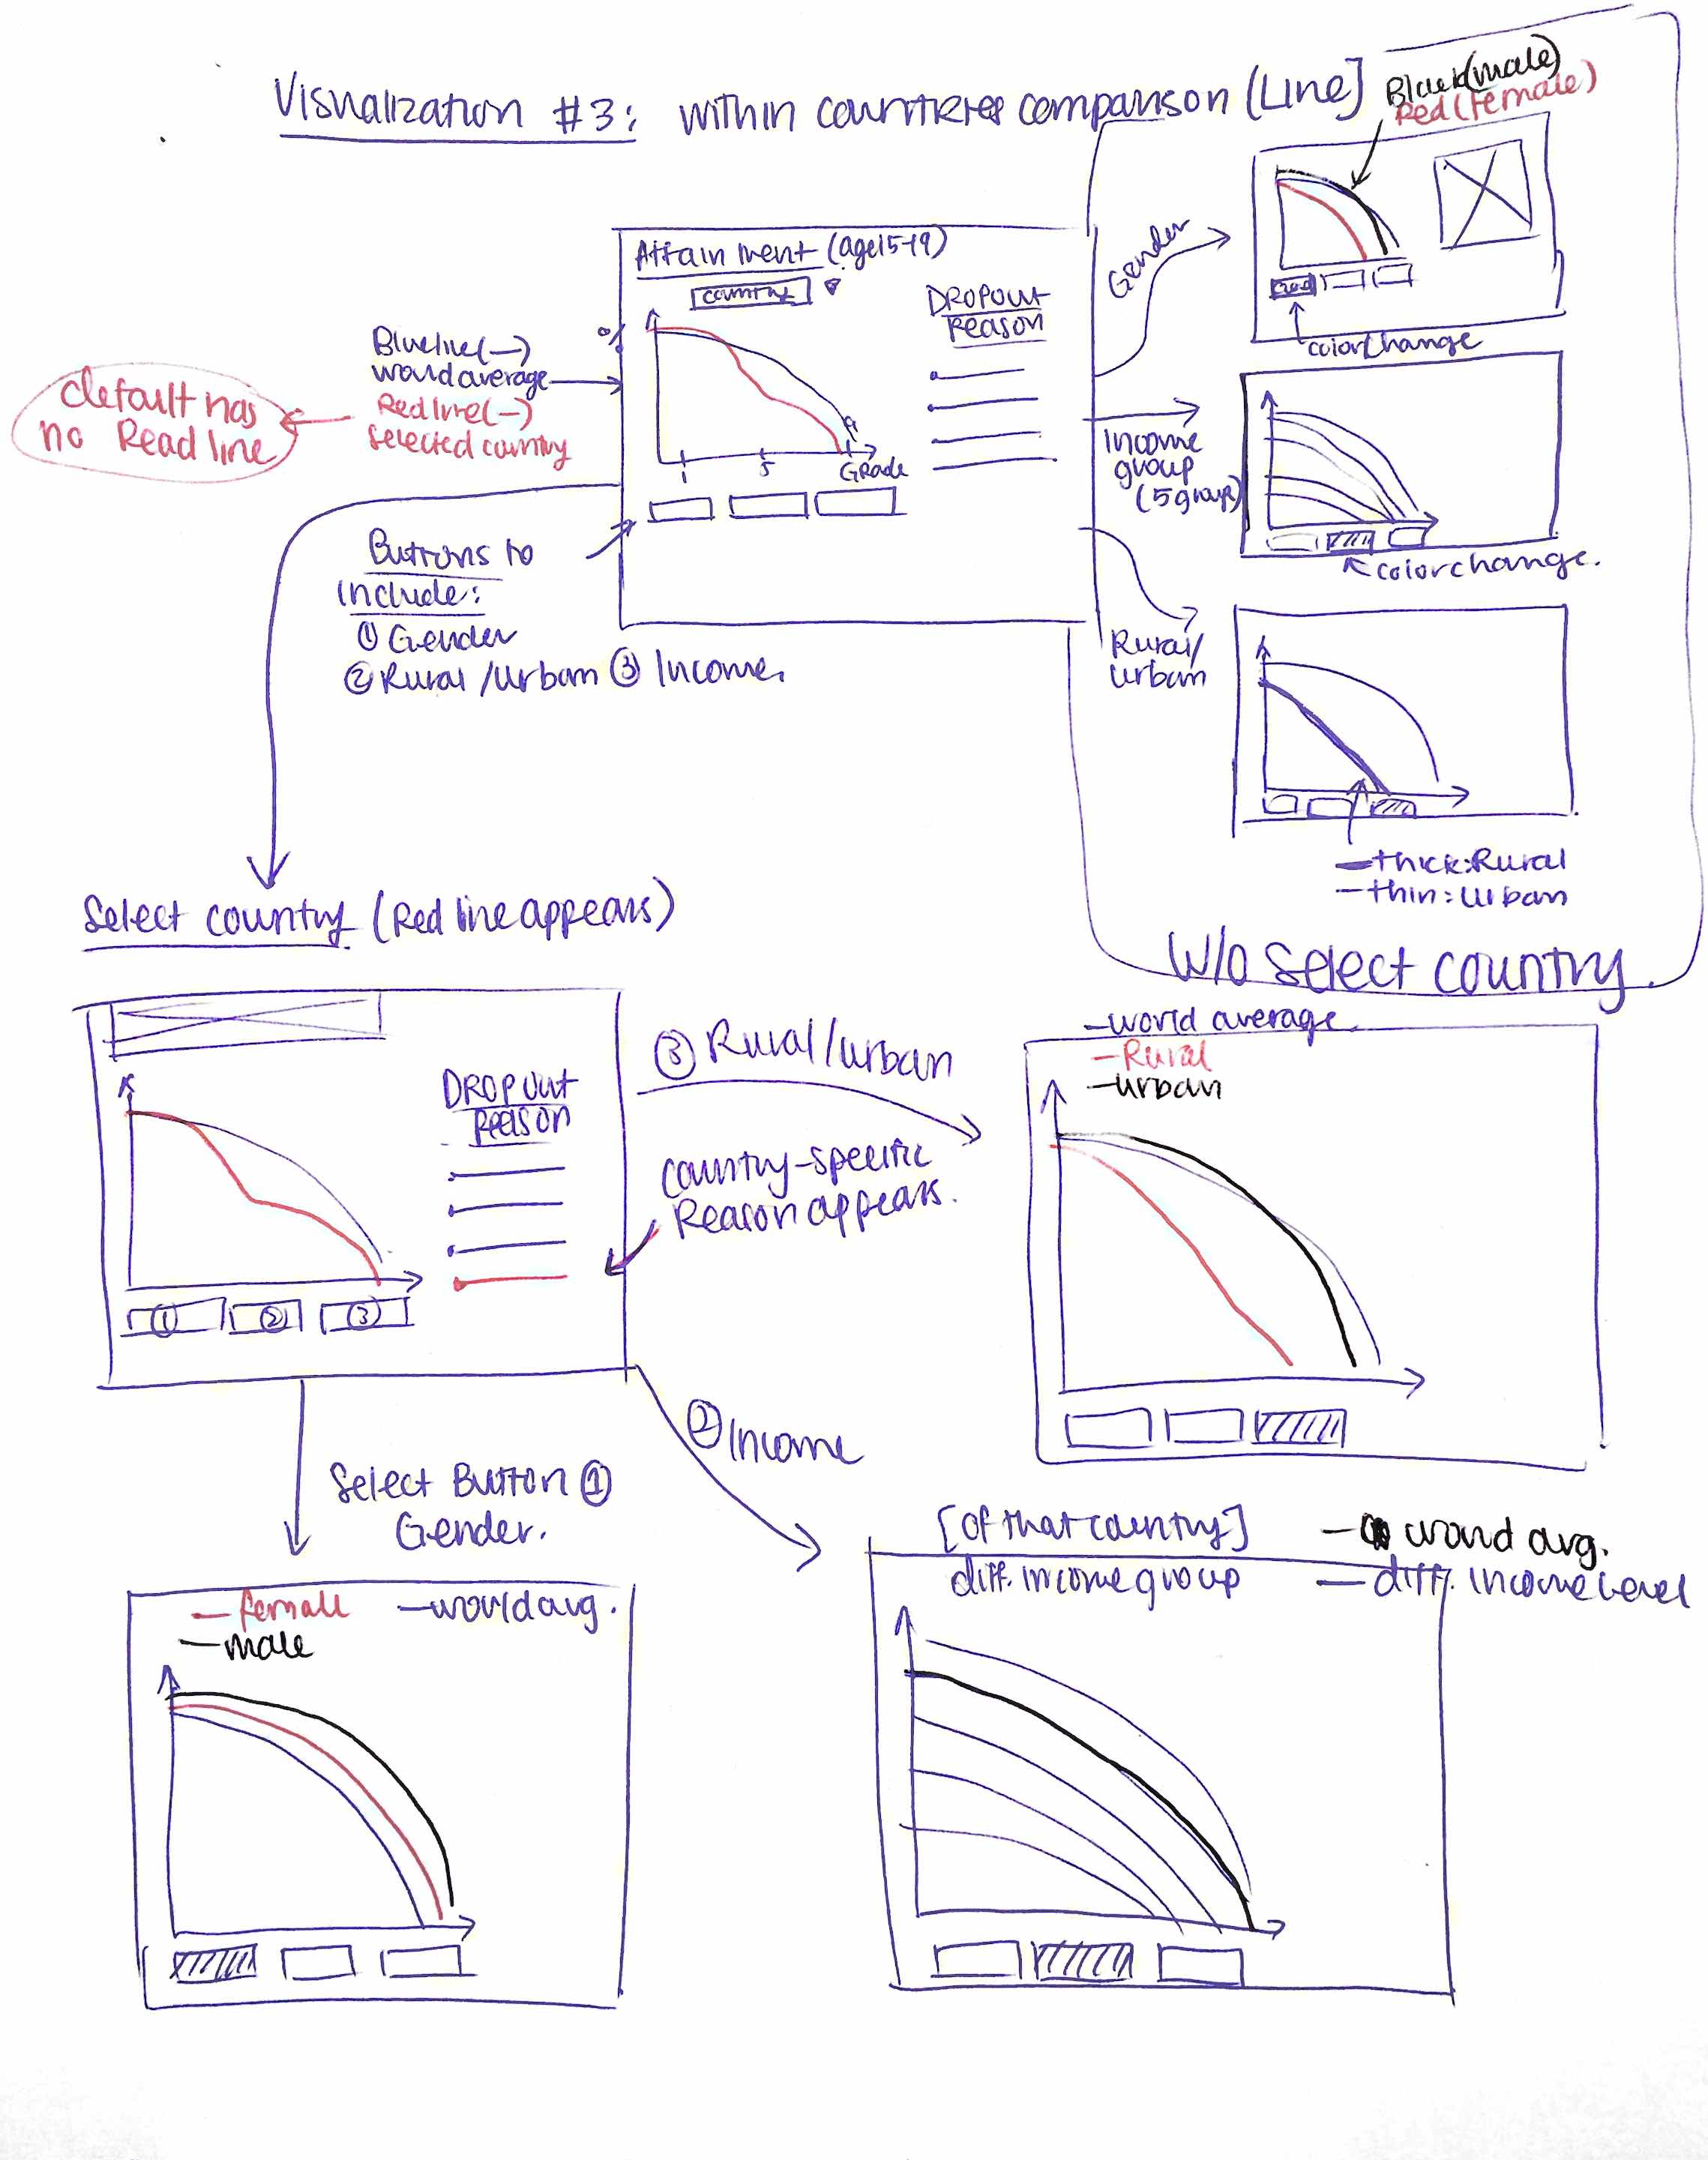 Visualization #3: within countries comparison (Line]
Black(male)
Red(Female)
Attainment (age15-19)
country
%
1
5
9
Grade
DROPOUT
Reason
Blueline(—)
world average
Redline(—)
Selected country
default has
no Read line
Buttons to
include:
① Gender
② Rural/urban ③ Income.
Gender
colorchange
Income
group
(5 group)
colorchange.
Rural/
urban
—thick:Rural
—thin:Urban
W/o select country.
Select country (Red line appears)
DROPOUT
Reason
① ② ③
③ Rural/urban
Country-specific
Reason appears.
—world average.
—Rural
—urban
Select Button ①
Gender.
② Income
—female —world avg.
—male
[of that country]
diff. income group
— world avg.
— diff. income level